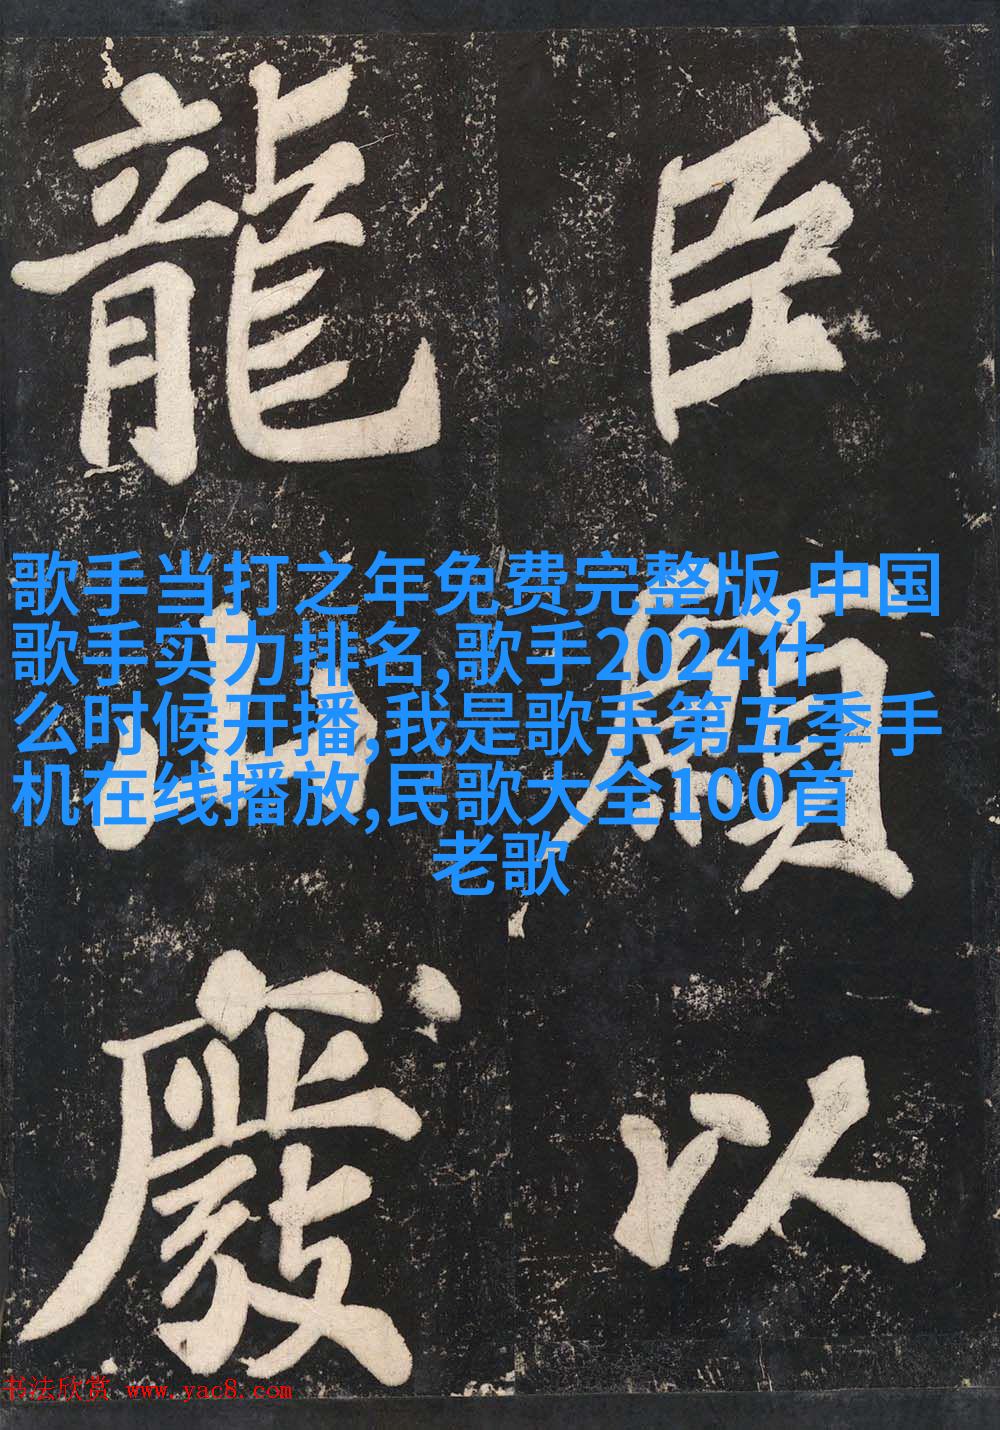 臣願以
龍山嚴
歌手当打之年免费完整版,中国
歌手实力排名,歌手2024什
么时候开播,我是歌手第五季手
机在线播放,民歌大全100首
老歌
书法欣赏 www.yac8.com